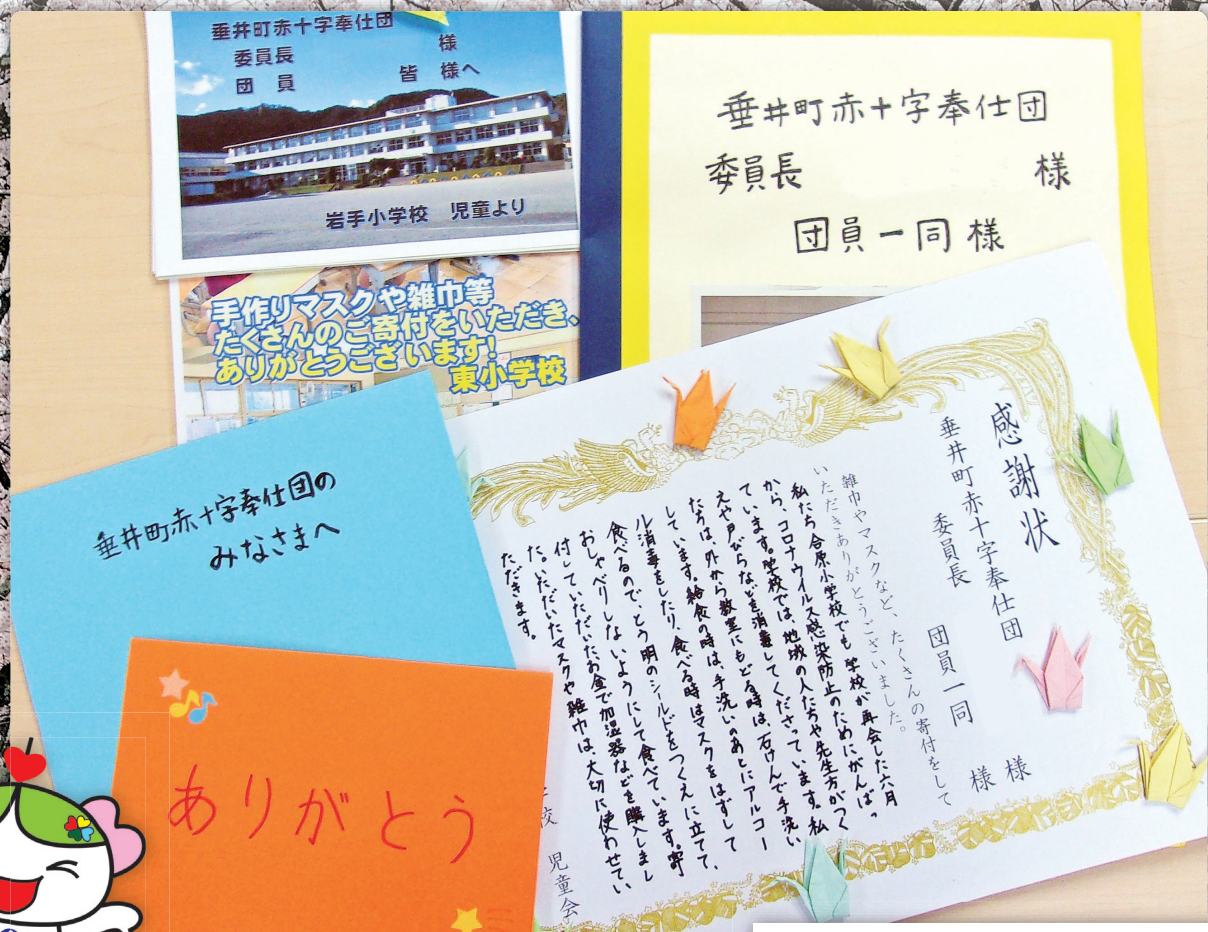 垂井町赤十字奉仕団
委員長 様
団員 皆様へ
岩手小学校 児童より
垂井町赤十字奉仕団
委員長 様
団員一同様
手作りマスクや雑巾等
たくさんのご寄付をいただき、
ありがとうございます!
東小学校
垂井町赤十字奉仕団の
みなさまへ
ありがとう
感謝状
垂井町赤十字奉仕団
委員長 様
団員一同 様
雑巾やマスクなど、たくさんの寄付をして
いただきありがとうございました。
私たち合原小学校でも学校が再会した六月
から、コロナウイルス感染防止のためにがんばっ
ています。学校では、地域の人たちや先生方がつく
えや戸びらなどを消毒してくださっています。私
たちは、外から教室にもどる時は、石けんで手洗い
しています。給食の時は、手洗いのあとにアルコー
ル消毒をしたり、食べる時はマスクをはずして
食べるので、とう明のシールドをつくえに立てて、
おしゃべりしないようにして食べています。寄
付していただいたお金で加湿器などを購入しまし
た。いただいたマスクや雑巾は、大切に使わせてい
ただきます。
校 児童会